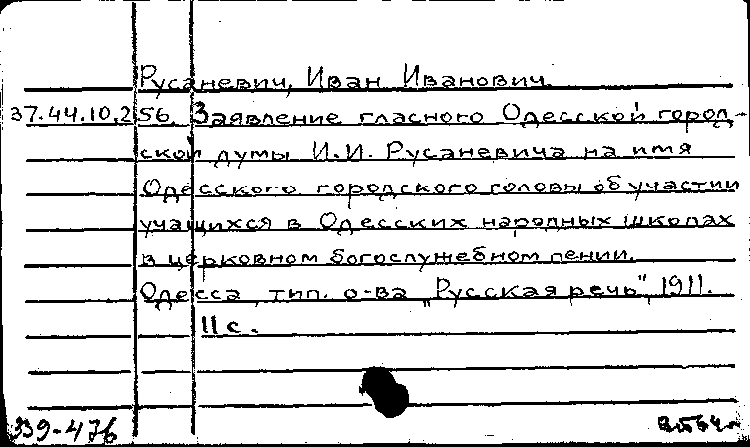 Русаневич, Иван Иванович.
37.44.10,256. Заявление гласного Одесской город-
ской думы И.И. Русаневича на имя
Одесского городского головы об участии
учащихся в Одесских народных школах
в церковном богослужебном пении.
Одесса, тип. о-ва „Русская речь", 1911.
11 с.
339-476